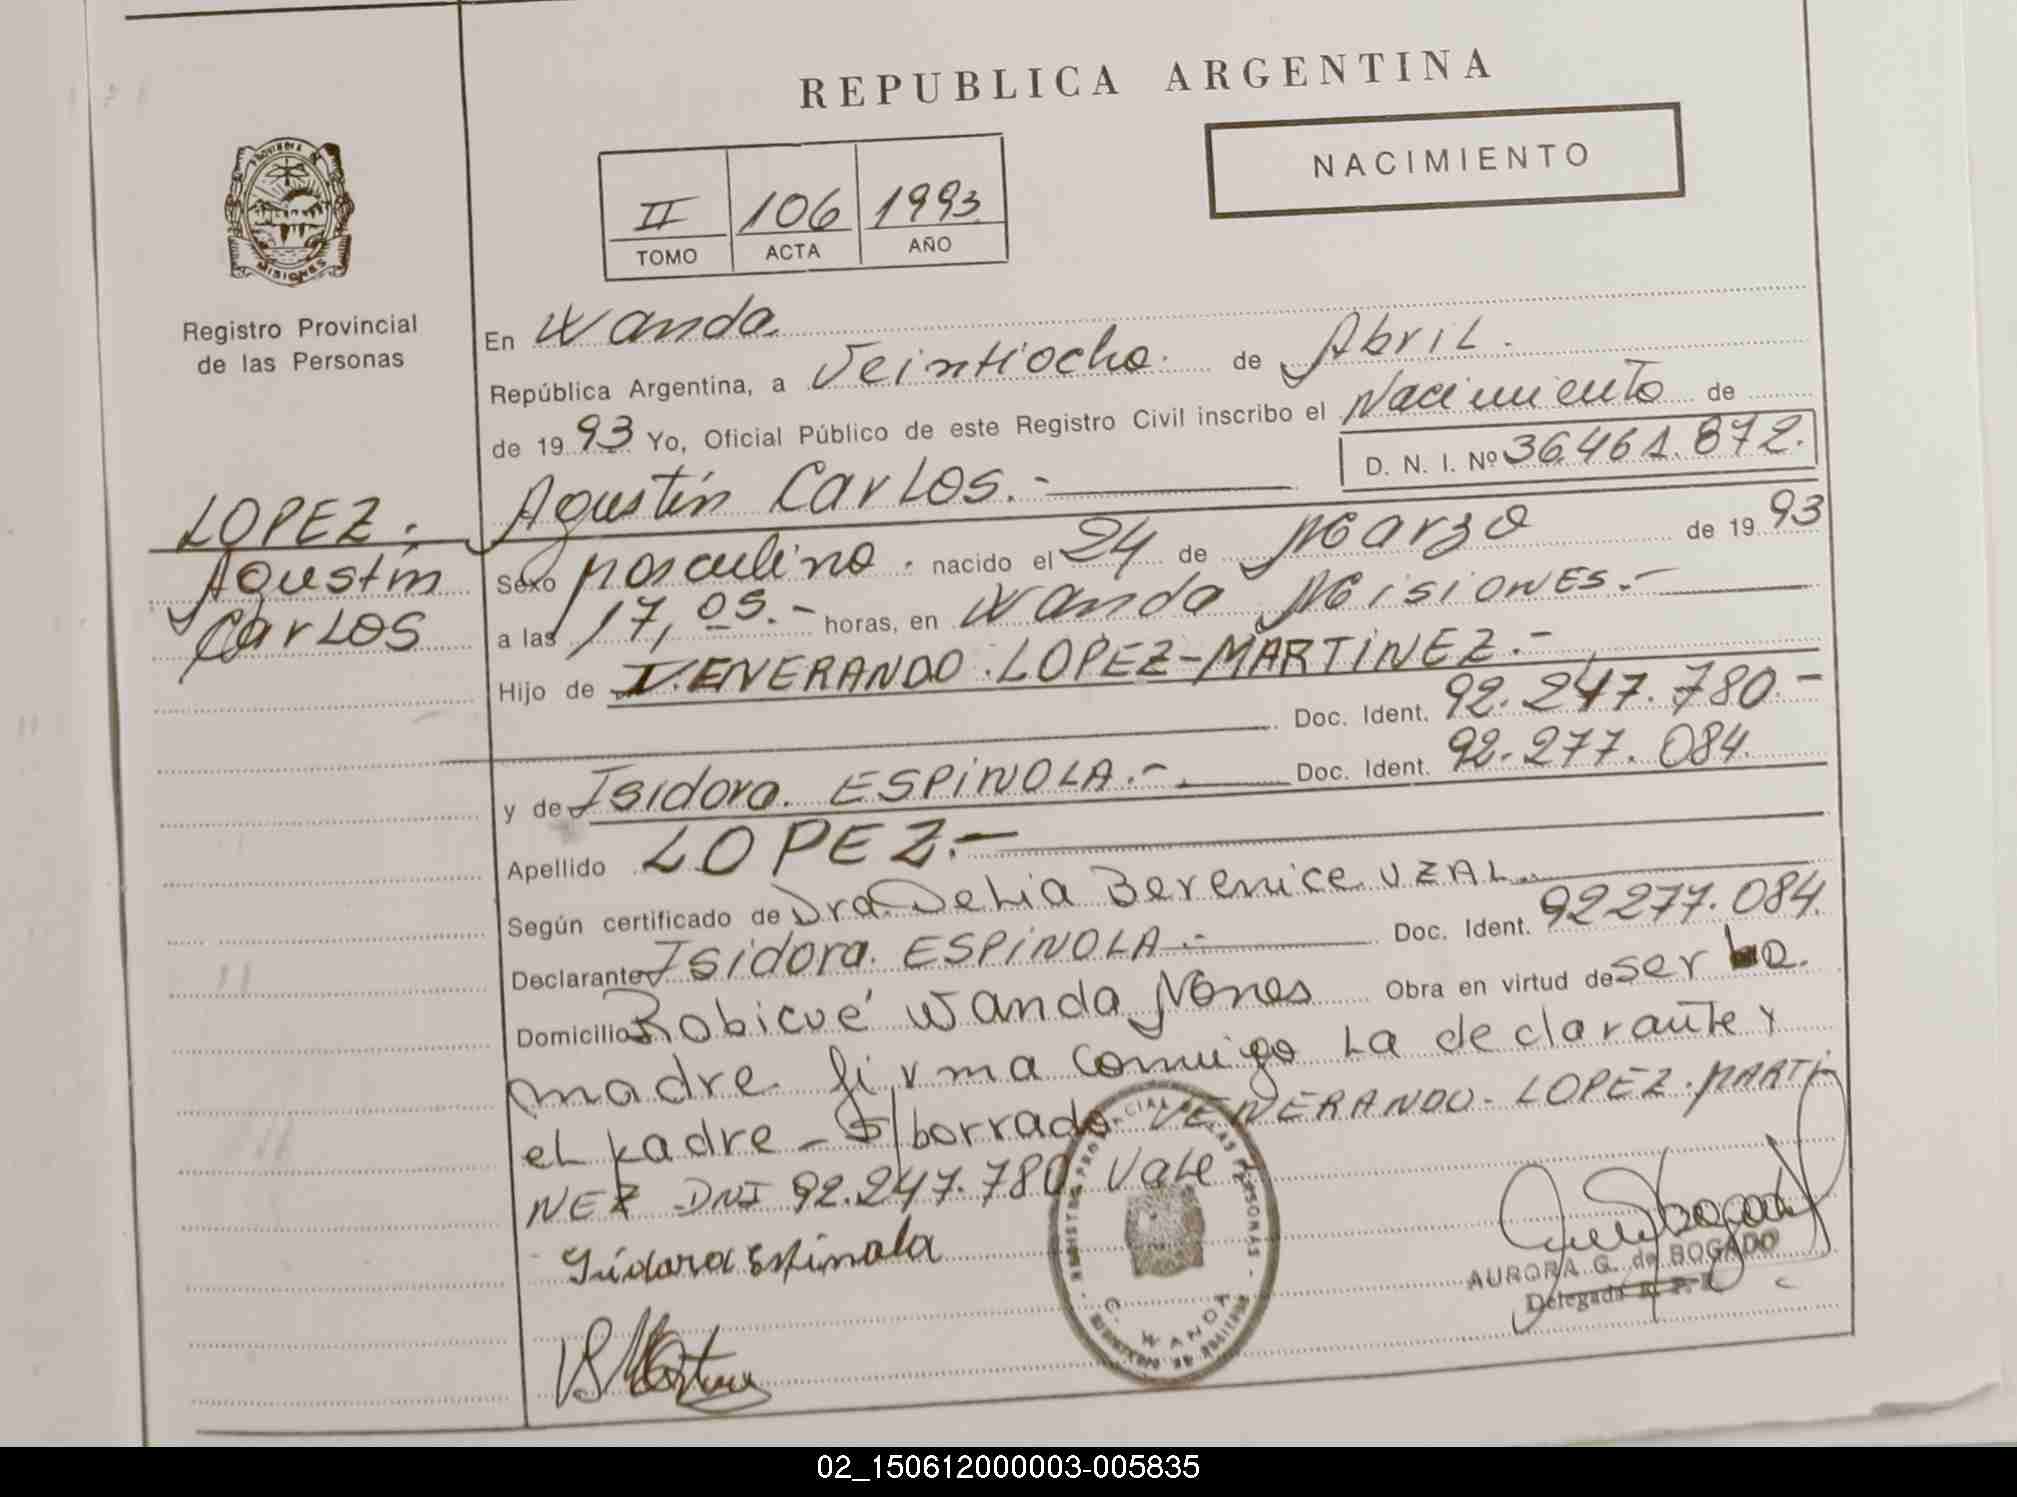 REPUBLICA ARGENTINA
NACIMIENTO
II 106 1993
TOMO ACTA AÑO
PROVINCIA DE
MISIONES
Registro Provincial
de las Personas
LOPEZ.
Agustín
Carlos
En Wanda.
República Argentina, a Veintiocho. de Abril.
de 1993 Yo, Oficial Público de este Registro Civil inscribo el Nacimiento de
D. N. I. Nº 36.461.872.
Agustín Carlos.-
Sexo masculino. nacido el 24 de Marzo de 1993
a las 17,05.- horas, en Wanda Misiones.-
Hijo de VENERANDO LOPEZ-MARTINEZ.-
Doc. Ident. 92.247.780.-
y de Isidora ESPINOLA.- Doc. Ident. 92.277.084.
Apellido LOPEZ.-
Según certificado de Dra Delia Berenice UZAL.
Declarante Isidora ESPINOLA.- Doc. Ident. 92277.084.
Domicilio Wanda Obra en virtud de ser la
madre firma comuigo La declarante y
el padre - S/borrado VENERANDO LOPEZ MARTI
NEZ DNI 92.247.780 Vale
Isidora Espinola
AURORA G. de BOGADO
Delegada R. P.
WANDA
02_150612000003-005835